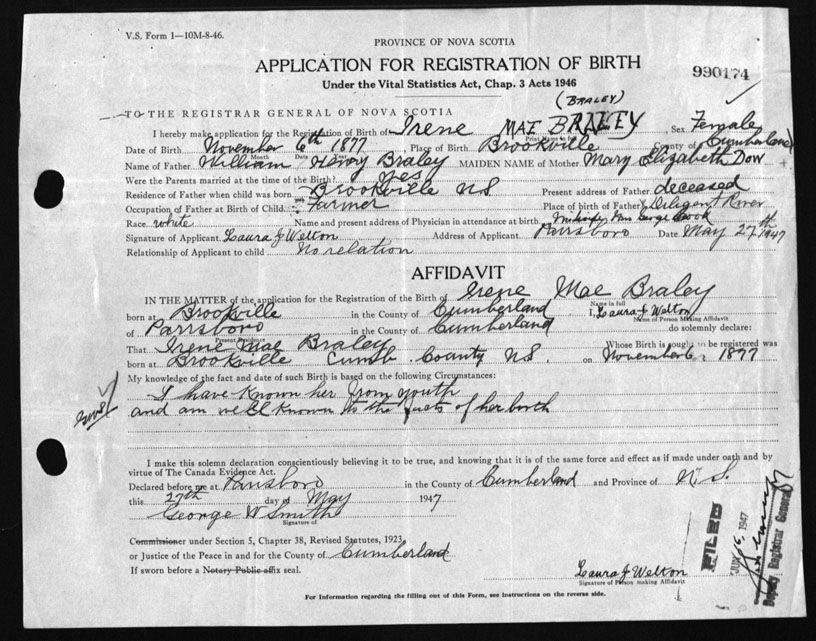 V.S. Form 1—10M-8-46.
PROVINCE OF NOVA SCOTIA
APPLICATION FOR REGISTRATION OF BIRTH
990174
Under the Vital Statistics Act, Chap. 3 Acts 1946
(BRALEY)
TO THE REGISTRAR GENERAL OF NOVA SCOTIA
I hereby make application for the Registration of Birth of Irene MAE BRALEY, Sex Female
Print Name in full
Date of Birth November 6th 1877, Place of Birth Brookville County of Cumberland
Month Date Year
Name of Father William Henry Braley MAIDEN NAME of Mother Mary Elizabeth Dow
Were the Parents married at the time of the Birth? Yes
Residence of Father when child was born Brookville NS Present address of Father deceased
Occupation of Father at Birth of Child Farmer Place of birth of Father Diligent River
Race white Name and present address of Physician in attendance at birth Midwife Mrs George Cook
Signature of Applicant Laura J Welton Address of Applicant Parrsboro Date May 27th 1947
Relationship of Applicant to child No relation
AFFIDAVIT
IN THE MATTER of the application for the Registration of the Birth of Irene Mae Braley
Name in full
born at Brookville in the County of Cumberland I, Laura J Welton
Name of Person Making Affidavit
of Parrsboro in the County of Cumberland do solemnly declare:
Present Residence
That Irene Mae Braley Whose Birth is sought to be registered was
born at Brookville Cumb. County NS. on November 6, 1877
My knowledge of the fact and date of such Birth is based on the following Circumstances:
I have known her from youth
and am well known to the facts of her birth
I make this solemn declaration conscientiously believing it to be true, and knowing that it is of the same force and effect as if made under oath and by
virtue of The Canada Evidence Act.
Declared before me at Parrsboro in the County of Cumberland and Province of N.S.
this 27th day of May 1947
George W Smith
Signature of
Commissioner under Section 5, Chapter 38, Revised Statutes, 1923
or Justice of the Peace in and for the County of Cumberland
If sworn before a Notary Public affix seal.
Laura J Welton
Signature of Person making Affidavit
FILED
1947
Deputy Registrar General
For Information regarding the filling out of this Form, see instructions on the reverse side.